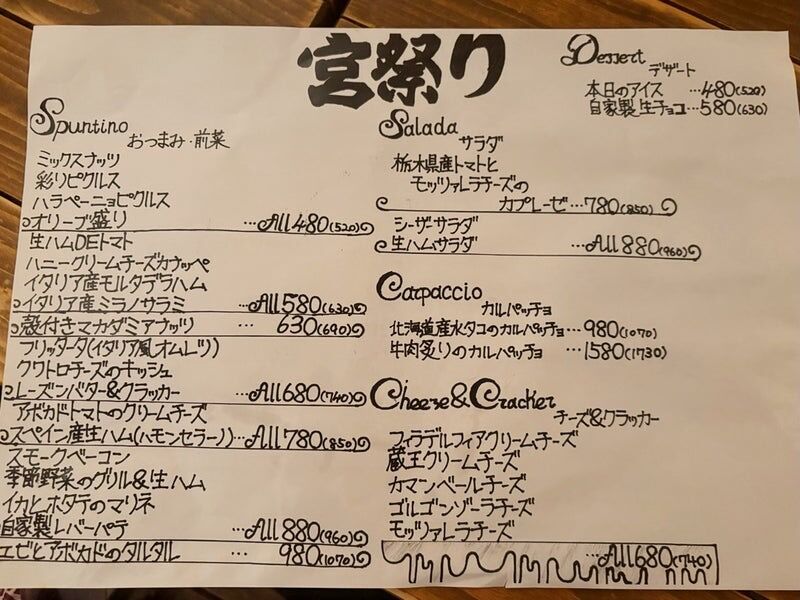 宮祭り
Spuntino
おつまみ・前菜
ミックスナッツ
彩りピクルス
ハラペーニョピクルス
オリーブ盛り …All 480(520)
生ハムDEトマト
ハニークリームチーズカナッペ
イタリア産モルタデラハム
イタリア産ミラノサラミ …All 580(630)
殻付きマカダミアナッツ … 630(690)
フリッタータ(イタリア風オムレツ)
クワトロチーズのキッシュ
レーズンバター&クラッカー …All 680(740)
アボカドトマトのクリームチーズ
スペイン産生ハム(ハモンセラーノ)…All 780(850)
スモークベーコン
季節野菜のグリル&生ハム
イカとホタテのマリネ
自家製レバーパテ …All 880(960)
エビとアボカドのタルタル … 980(1070)
Salada
サラダ
栃木県産トマトと
モッツァレラチーズの
カプレーゼ…780(850)
シーザーサラダ
生ハムサラダ …All 880(960)
Carpaccio
カルパッチョ
北海道産水タコのカルパッチョ…980(1070)
牛肉炙りのカルパッチョ …1580(1730)
Cheese&Cracker
チーズ&クラッカー
フィラデルフィアクリームチーズ
蔵王クリームチーズ
カマンベールチーズ
ゴルゴンゾーラチーズ
モッツァレラチーズ
…All 680(740)
Dessert
デザート
本日のアイス …480(520)
自家製生チョコ…580(630)